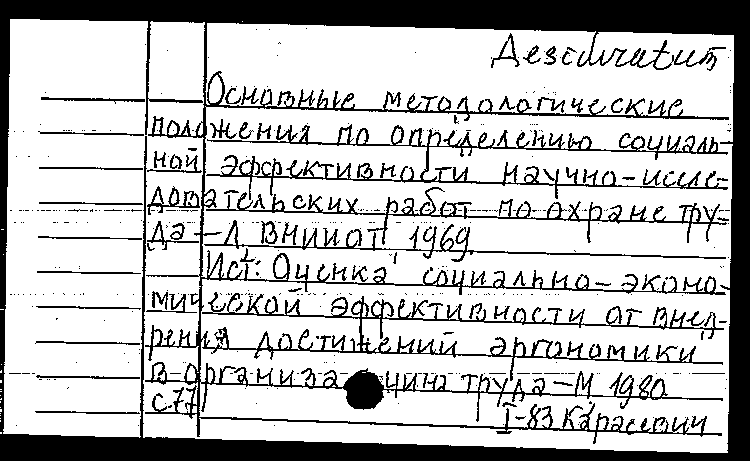 Дезидератит
Основные методологические
положения по определению социаль-
ной эффективности научно-иссле-
довательских работ по охране тру-
да – Л, ВНИИОТ, 1969.
Ист: Оценка социально-эконо-
мической эффективности от внед-
рения достижений эргономики
в организа ции труда – М, 1980
с 77
I-83 Карасевич